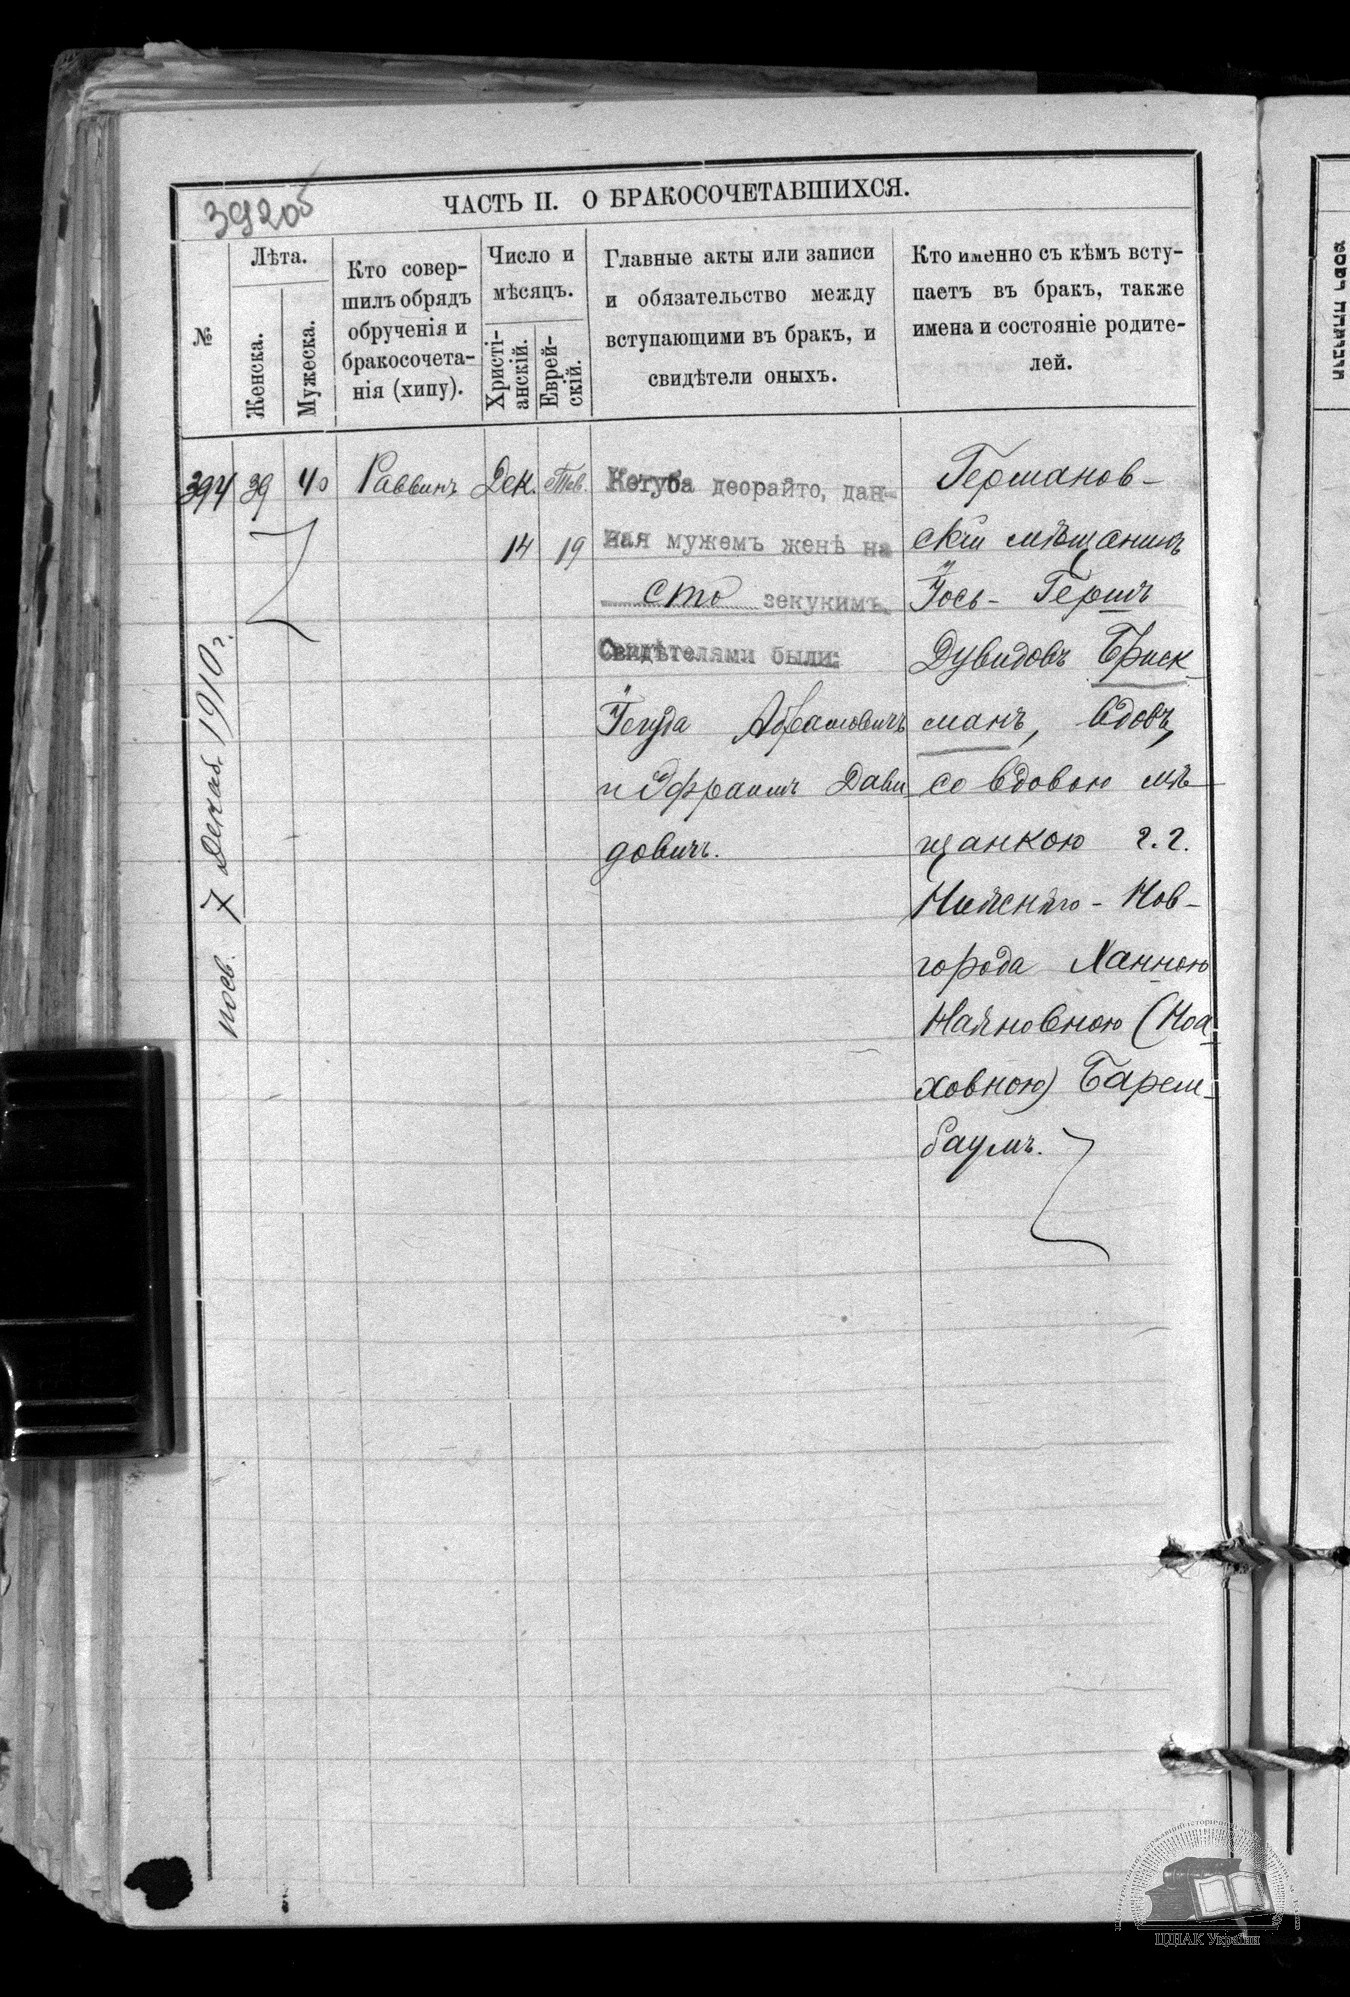 39205
ЧАСТЬ II. О БРАКОСОЧЕТАВШИХСЯ.
№
Лѣта.
Женска.
Мужеска.
Кто совер-
шилъ обрядъ
обрученія и
бракосочета-
нія (хипу).
Число и
мѣсяцъ.
Христі-
анскій.
Еврей-
скій.
Главные акты или записи
и обязательство между
вступающими въ бракъ, и
свидѣтели оныхъ.
Кто именно съ кѣмъ всту-
паетъ въ бракъ, также
имена и состояніе родите-
лей.
394
39
40
Раввинъ
Дек.
14
Тев.
19
Кетуба деорайто, дан-
ная мужемъ женѣ на
сто зекукимъ.
Свидѣтелями были:
Іегуда Абрамовичъ
и Эфраимъ Дави
довичъ.
Германов-
скій мѣщанинъ
Іось-Гершъ
Дувидовъ Бриск
манъ, вдовъ,
со вдовою мѣ-
щанкою г.г.
Нижняго-Нов-
города Ханною
Наймовною (Ноа
ховною) Барен-
баумъ.
7 Декаб. 1910 г.
ЦДІАК України